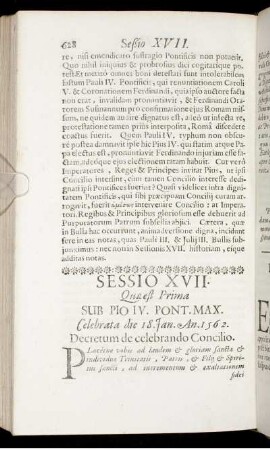 628 Sessio XVII.
re, nisi concedenti suffragio Pontificis non poterit.
Quo nihil iniquius & probrosius dici cogitarique po-
test. Et merito omnes boni detestati sunt intolerabilem
fastum Pauli IV. Pontificis, qui renuntiationem Caroli
V. & Coronationem Ferdinandi, quia ipso auctore facta
non erat, invalidam pronuntiavit, & Ferdinandi Ora-
torem Submontium pro confirmatione ejus Romam mis-
sum, ne quidem au dire dignatus est, ideo ur infecta re,
protestatione tamen prius interposita, Roma discedere
coactus fuerit. Quem Pauli IV. typhum non obscu-
re postea damnavit ipse hic Pius IV. qui statim atque Pa-
pa electus est, pronuntiavit Ferdinando injuriam esse fa-
ctam, adeoque ejus electionem ratam habuit. Cur verò
Imperatores, Reges & Principes invitat Pius, ut ipsi
Concilio intersint, cum tamen Concilio interesse dedi-
gnati ipsi Pontifices fuerint? Quasi videlicet infra digni-
tatem Pontificis, qui sibi præcipuam Concilij curam ar-
rogavit, fuerit intervenire Concilio: at Impera-
tori Regibus & Principibus gloriosum esse debuerit ad
Purpuratorum Patrum subsellia abjici. Cætera, quæ
in Bulla hac occurrunt, animadversione digna, incidunt
fere in eas notas, quas Pauli III. & Julij III. Bullis sub-
junximus: nec non in Sessionis XVII. historiam, eique
additas notas.
SESSIO XVII.
Quæ est Prima
SUB PIO IV. PONT. MAX.
Celebrata die 18. Jan. An. 1562.
Decretum de celebrando Concilio.
Placetne vobis ad laudem & gloriam sanctæ &
individuæ Trinitatis, Patris, & Filij & Spiri-
tus sancti, ad incrementum & exaltationem
fidei